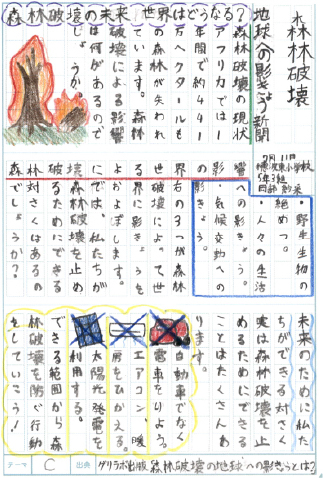 森林破壊
地球への影きょう新聞
7月11日
5年3組
森林破壊の未来 世界はどうなる?
森林破壊の現状
アフリカでは一
年間で約441
万ヘクタールも
の森林が失われ
ています。森林
破壊による影響
は何があるので
しょうか。
・野生生物の
絶めつ。
・人々の生活
への影きょう。
・気候変動への
影きょう。
右の3つが森林
破壊によって世
界に影きょうを
およぼします。
では、私たちが
森林破壊を止め
るためにできる
対さくはあるの
でしょうか?
未来のために私た
ちができる対さく
実は森林破壊を止
めるためにできる
ことはたくさんあ
ります。
自動車でなく
電車をりよう。
エアコン、暖
房をひかえる。
太陽光発電を
利用する。
できる範囲から森
林破壊を防ぐ行動
をしていこう!
テーマ C 出典 グリラボ出版"森林破壊の地球への影きょうとは?"